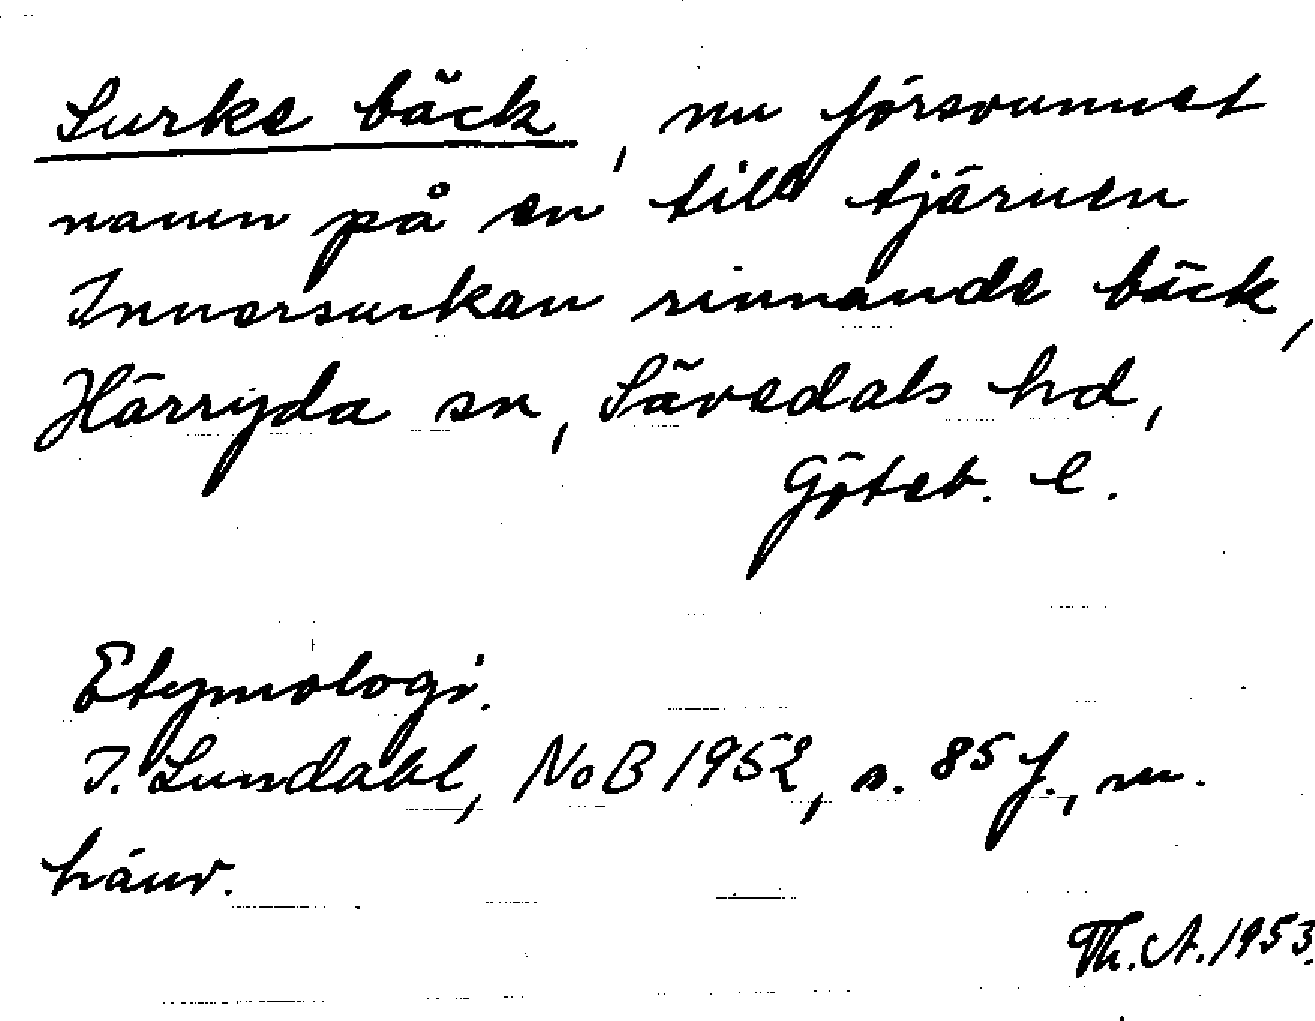 Surke bäck, nu försvunnet
namn på en till tjärnen
Innersurkan rinnande bäck,
Härryda sn, Sävedals hd,
Göteb. l.
Etymologi.
I. Lundahl, NoB 1952, s. 85 f., m.
hänv.
Th. A. 1953.